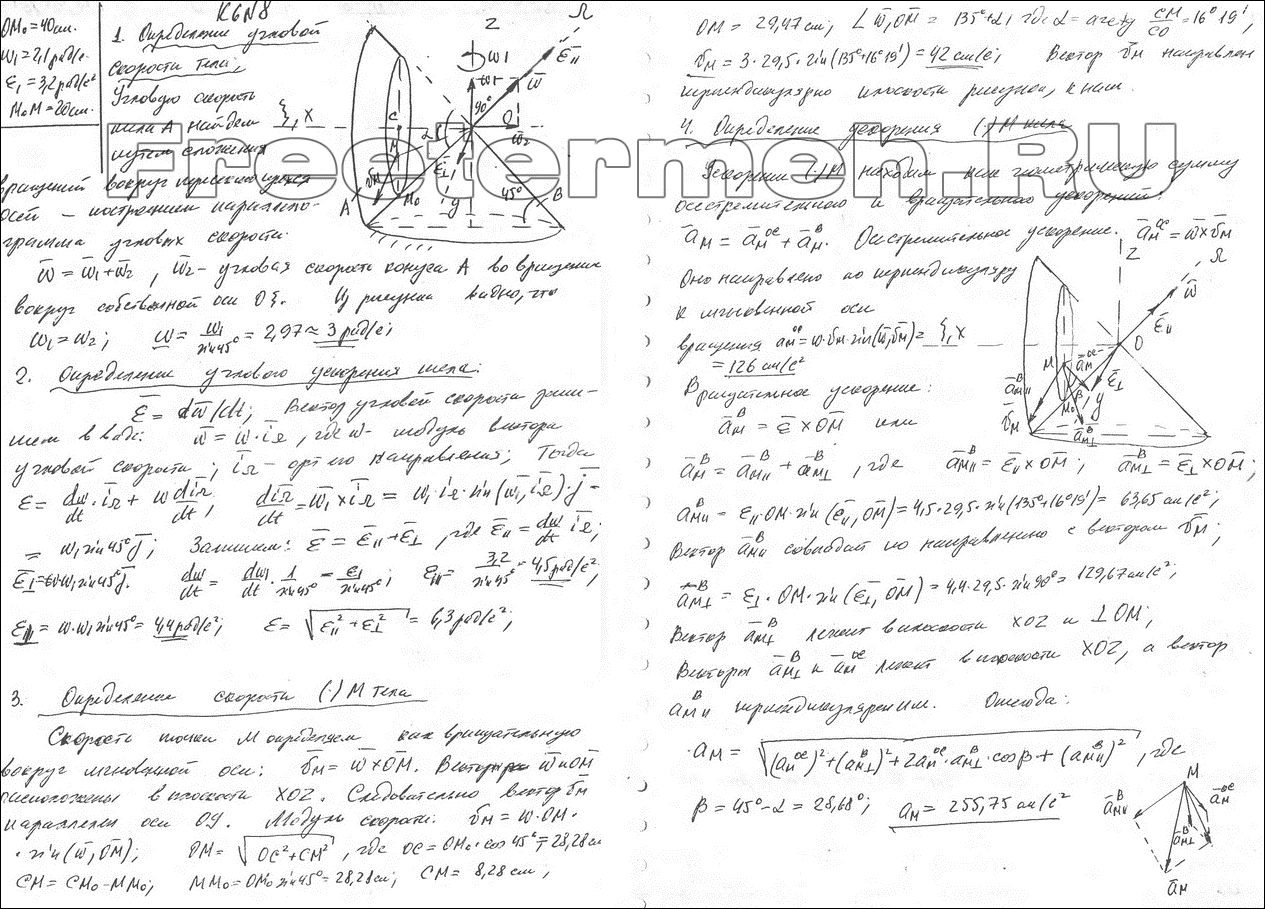 К6N8
OM₀ = 40 см.
ω₁ = 2,1 рад/с
ε₁ = 3,2 рад/с²
M₀M = 20 см.
1. Определение угловой
скорости тела;
Угловую скорость
тела A найдем
путем сложения
вращений вокруг пересекающихся
осей – построением паралело-
грамма угловых скорости.
ω̄ = ω̄₁ + ω̄₂ , ω̄₂ – угловая скорость конуса A во вращении
вокруг собственной оси Oξ. Из рисунка видно, что
ω₁ = ω₂; ω = ω₁/sin45° = 2,97 ≈ 3 рад/с;
2. Определение углового ускорения тела:
ε̄ = dω̄/dt; Вектор угловой скорости запи-
шем в виде: ω̄ = ω·īΩ, где ω – модуль вектора
угловой скорости; īΩ – орт его направления; Тогда
ε = dω/dt · īΩ + ω dīΩ/dt, dīΩ/dt = ω̄₁ × īΩ = ω₁·iΩ·sin(ω̄₁, īΩ)·j̄ =
= ω₁ sin45° j̄; Запишем: ε̄ = ε̄ıı + ε̄⊥, где ε̄ıı = dω/dt īΩ;
ε̄⊥ = ω·ω₁ sin45° j̄. dω/dt = dω₁/dt · 1/sin45° = ε₁/sin45°; εıı = 3,2/sin45° = 4,5 рад/с²;
= ω·ω₁ sin45° = 4,4 рад/с²; ε = √(εıı² + ε⊥²) = 6,3 рад/с²;
3. Определение скорости (·) M тела
Скорость точки M определяем как вращательную
вокруг мгновенной оси: v̄M = ω̄ × OM̄. Векторы ω̄ и OM̄
расположены в плоскости XOZ. Следовательно вектор v̄M
параллелен оси Oy. Модуль скорости: vM = ω·OM·
· sin(ω̄, OM̄); OM = √(OC² + CM²), где OC = OM₀·cos45° = 28,28 см
CM = CM₀ – MM₀; MM₀ = OM₀ sin45° = 28,28 см; CM = 8,28 см,
Z Ω
ω1 ε̄ıı
ω̄
90°
ξ, X
C α O ω̄₂
M
ε̄⊥
v̄M
A M₀ y 45° B
OM = 29,47 см; ∠ω̄, OM̄ = 135° + α; где α = arctg CM/CO = 16°19′;
vM = 3·29,5·sin(135° + 16°19′) = 42 см/с; Вектор v̄M направлен
перпендикулярно плоскости рисунка, к нам.
4. Определение ускорения (·) M тела
Ускорение (·) M находим как геометрическую сумму
осестремительного и вращательного ускорений.
āM = āMос + āMв. Осестремительное ускорение. āMос = ω̄ × v̄M
Оно направлено по перпендикуляру
к мгновенной оси
вращения aMос = ω·vM·sin(ω̄, v̄M) =
= 126 см/с²
Вращательное ускорение:
āMв = ε̄ × OM̄ или
Z Ω
ω̄
ε̄ıı
ξ, X O
M āMос ε̄⊥
āMııв M₀ β y
v̄M āM⊥в
āMв = āMııв + āM⊥в, где āMııв = ε̄ıı × OM̄; āM⊥в = ε̄⊥ × OM̄;
aMııв = εıı·OM·sin(ε̄ıı, OM̄) = 4,5·29,5·sin(135° + 16°19′) = 63,65 см/с²;
Вектор āMııв совпадает по направлению с вектором v̄M;
āM⊥в = ε⊥·OM·sin(ε̄⊥, OM̄) = 4,4·29,5·sin90° = 129,67 см/с²;
Вектор āM⊥в лежит в плоскости XOZ и ⊥ OM;
Векторы āM⊥в и āMос лежат в плоскости XOZ, а вектор
āMııв перпендикулярен им. Отсюда:
aM = √((aMос)² + (aM⊥в)² + 2aMос·aM⊥в·cosβ + (aMııв)²), где
β = 45° – α = 28,68°; aM = 255,75 см/с²
M
āMııв āMос
āM⊥в
āM
Freetermeh.RU